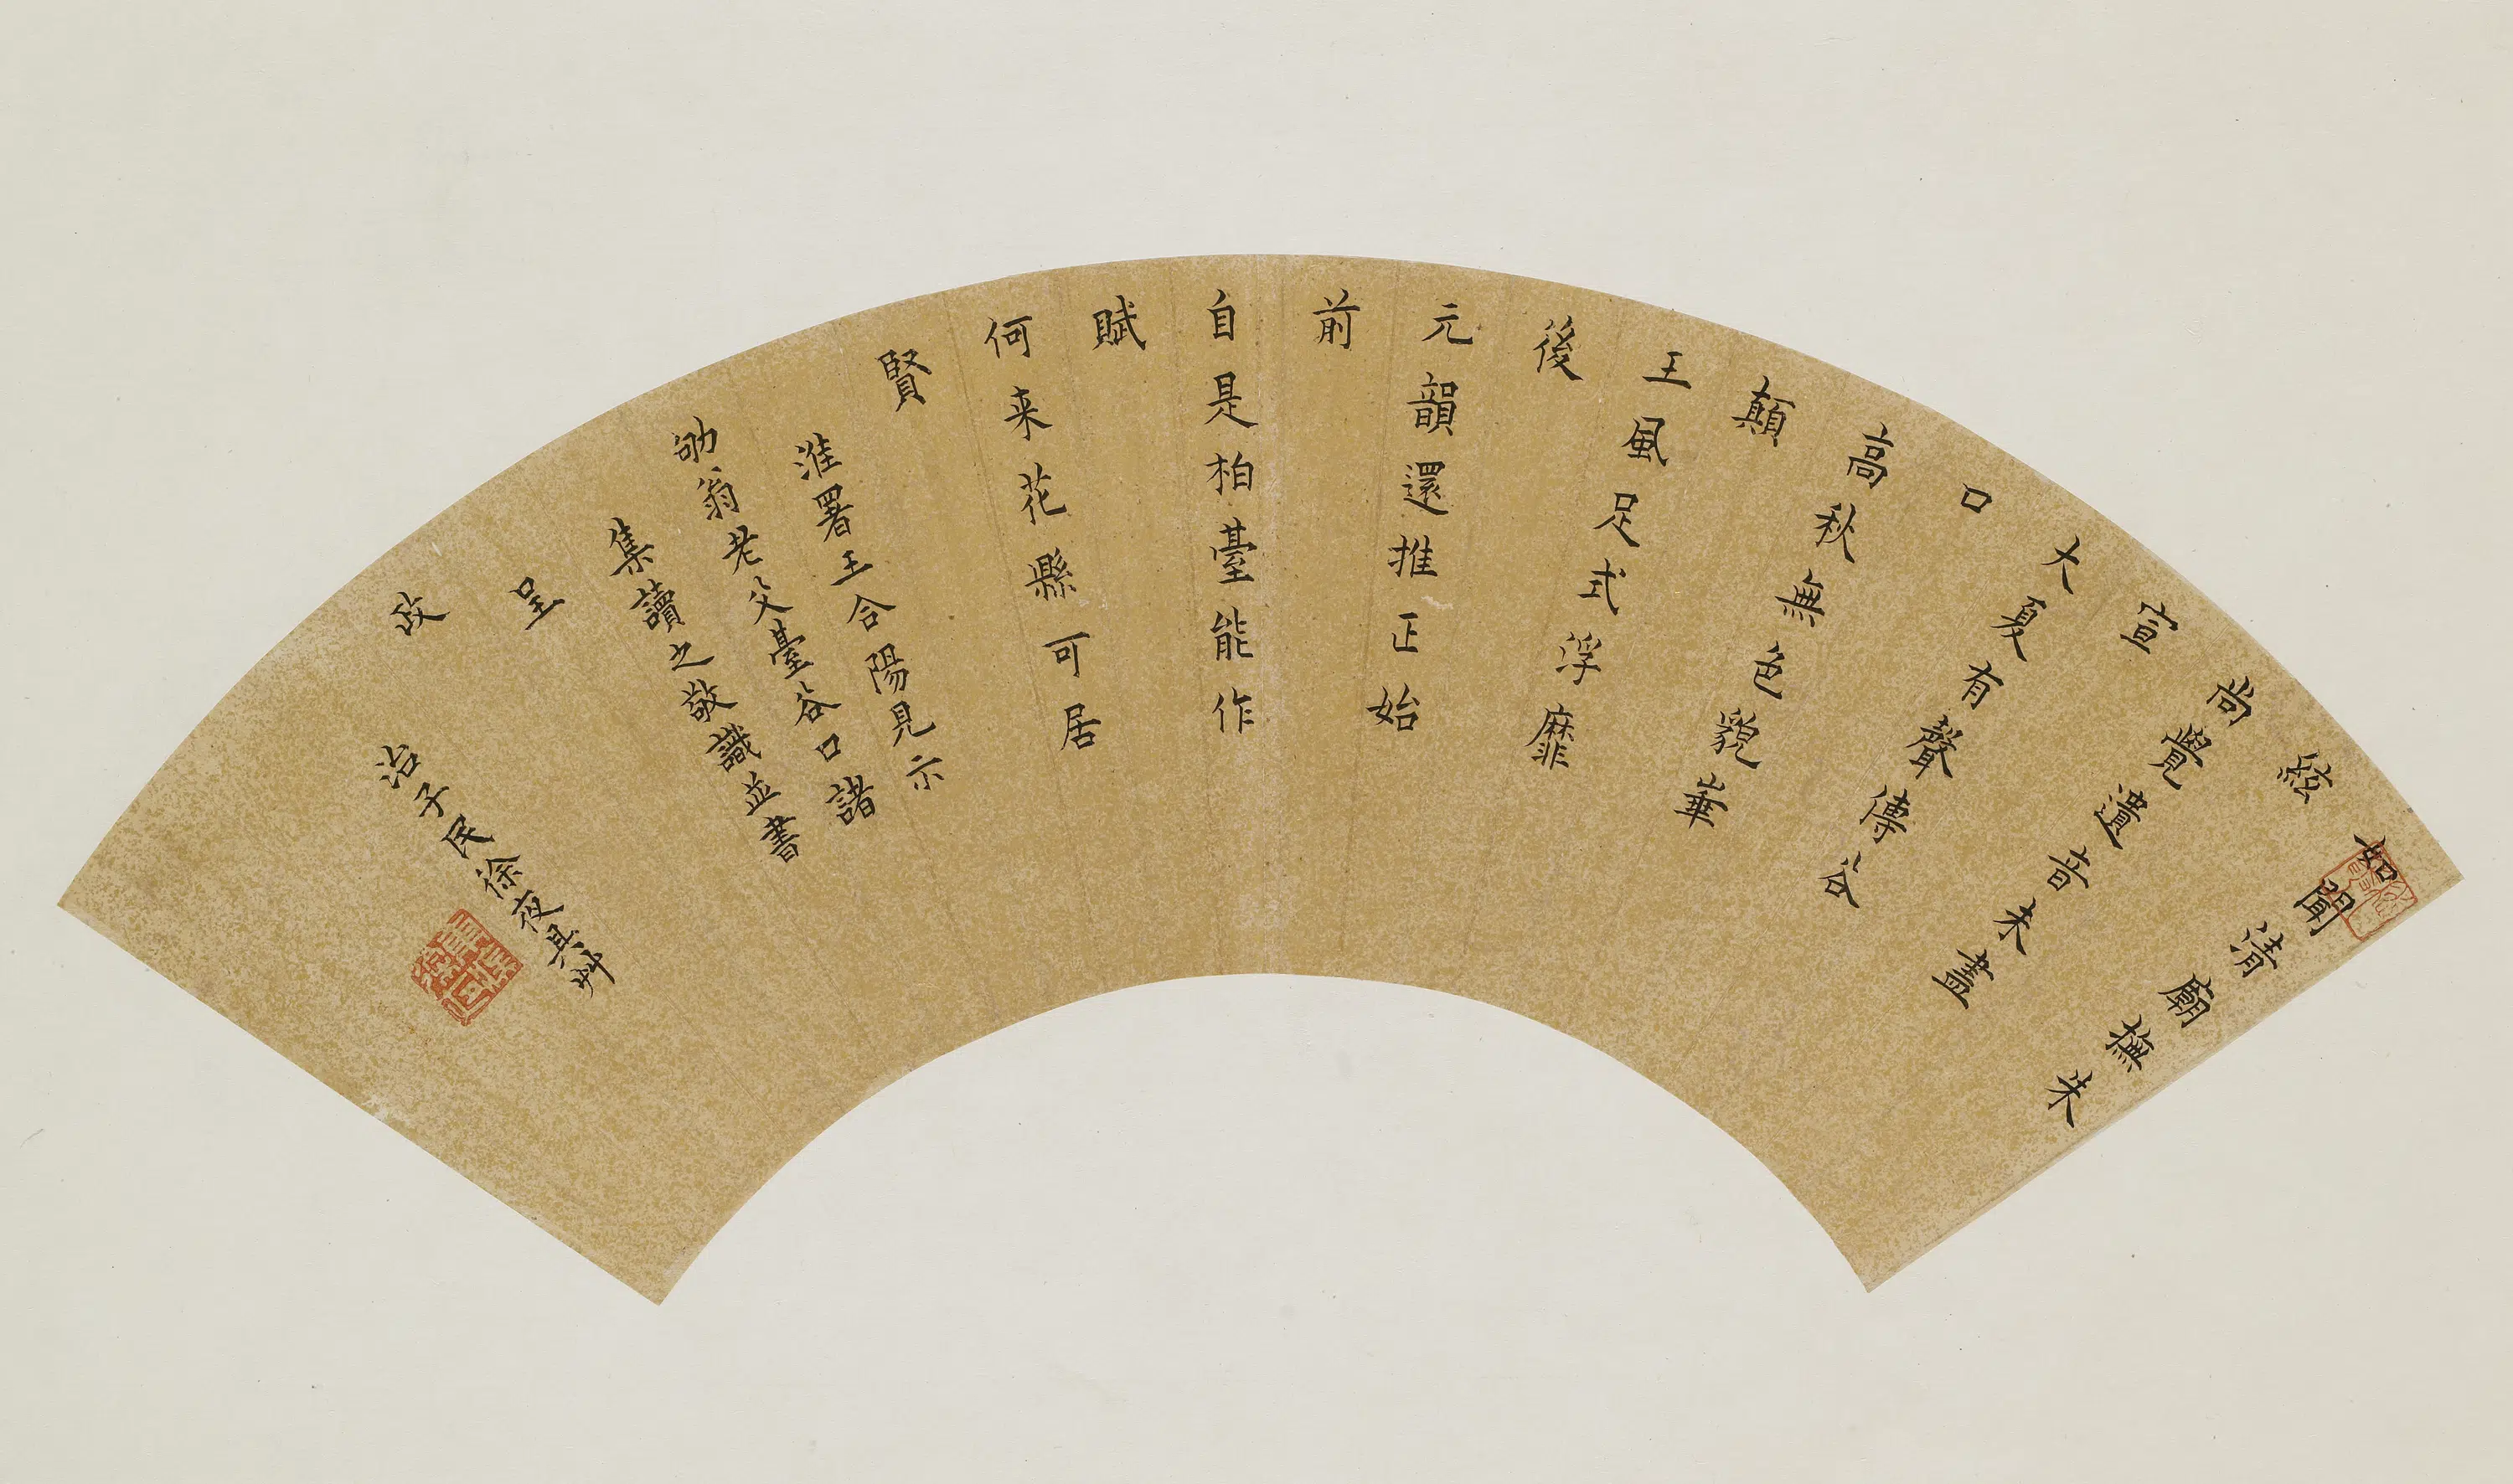 如聞清廟撫朱
絃
尚覺遺音未盡
宣
大夏有聲傳谷
口
高秋無色貌崋
顛
王風足式浮靡
後
元韻還推正始
前
自是柏臺能作
賦
何来花縣可居
賢
淮署王合陽見示
翁老父臺谷口諸
集讀之敬識並書
呈
政
治子民徐夜具艸